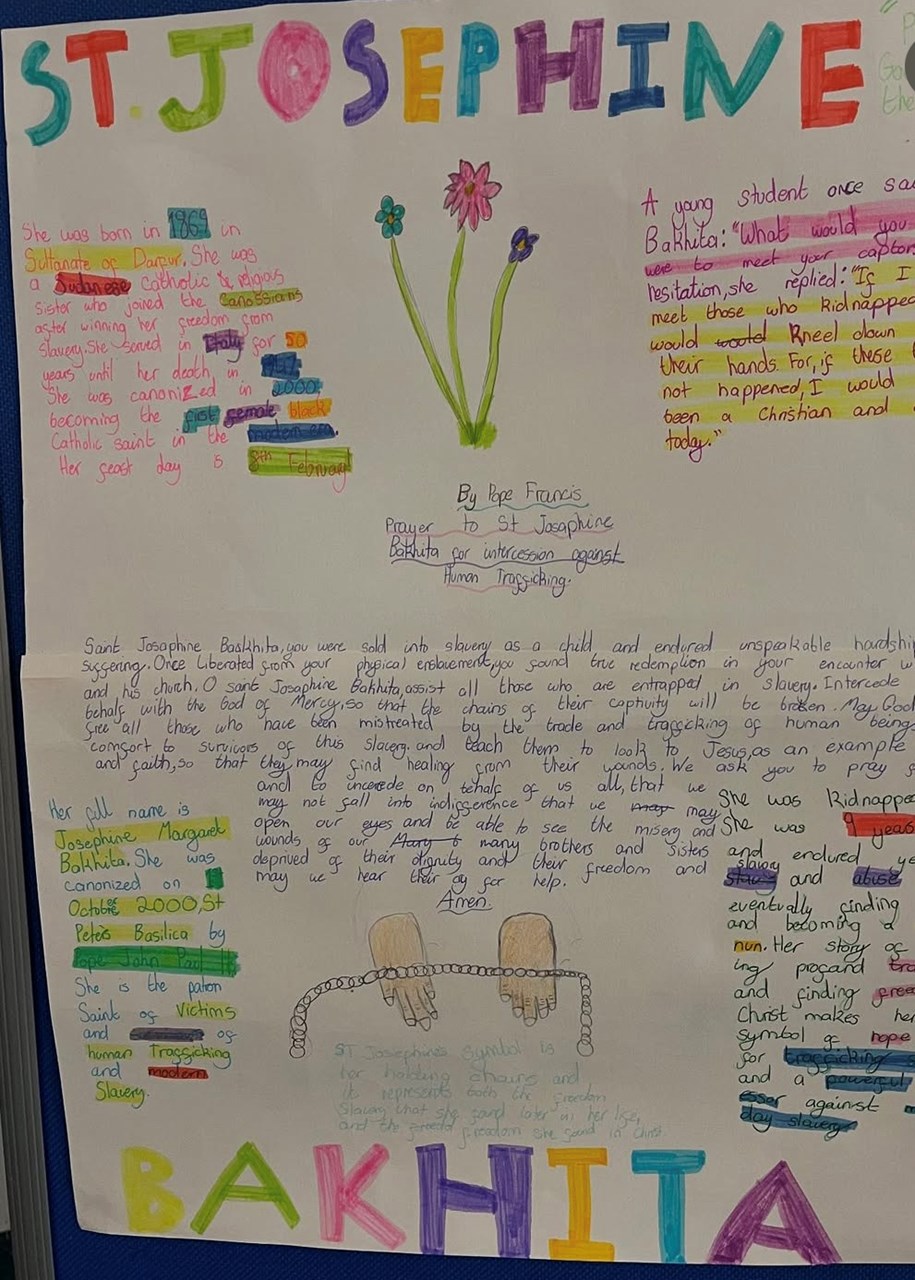 ST. JOSEPHINE
She was born in 1869 in
Sultanate of Darpur. She was
a Sudanese Catholic & religious
sister who joined the Canossians
after winning her freedom from
Slavery. She served in Italy for 50
years until her death, in
She was canonized in 2000,
becoming the first female black
Catholic saint in the modern era.
Her feast day is 8th February
A young student once sa
Bakhita: "What would you
were to meet your captor
hesitation, she replied: "If I
meet those who kidnapped
would would kneel down
their hands. For, if these
not happened, I would
been a Christian and
today."
By Pope Francis
Prayer to St Josaphine
Bakhita for intercession against
Human Trafficking.
Saint Josaphine Baskhita, you were sold into slavery as a child and endured unspeakable hardship
suffering. Once Liberated from your physical enslavement, you found true redemption in your encounter w
and his church. O saint Josaphine Bakhita, assist all those who are entrapped in slavery. Intercede
behalf with the God of Mercy, so that the chains of their captivity will be broken. May God
free all those who have been mistreated by the trade and trafficking of human being
comfort to survivors of this slavery. and teach them to look to Jesus, as an example
and faith, so that they may find healing from their wounds. We ask you to pray f
and to incerede on behalf of us all, that we
may not fall into indifference that we may may
open our eyes and be able to see the misery and
wounds of our many brothers and sisters
deprived of their dignity and their freedom and
may we hear their cry for help.
Amen.
Her full name is
Josephine Margaret
Bakhita. She was
canonized on 1
October 2000, St
Peter's Basilica by
Pope John Paul II
She is the patron
Saint of Victims
and of
human Trafficking
and modern
Slavery.
She was kidnappe
She was 9 years
and endured ye
slavery
and abuse
eventually finding
and becoming a
nun. Her story of
ing profand tra
and finding free
Christ makes her
symbol of hope
for trafficking
and a powerful
essor against m
day slavery
ST Josephine's Symbol is
her holding chains and
it represents both the freedom
Slavery that she found later in her life,
and the freedom she found in Christ.
BAKHITA